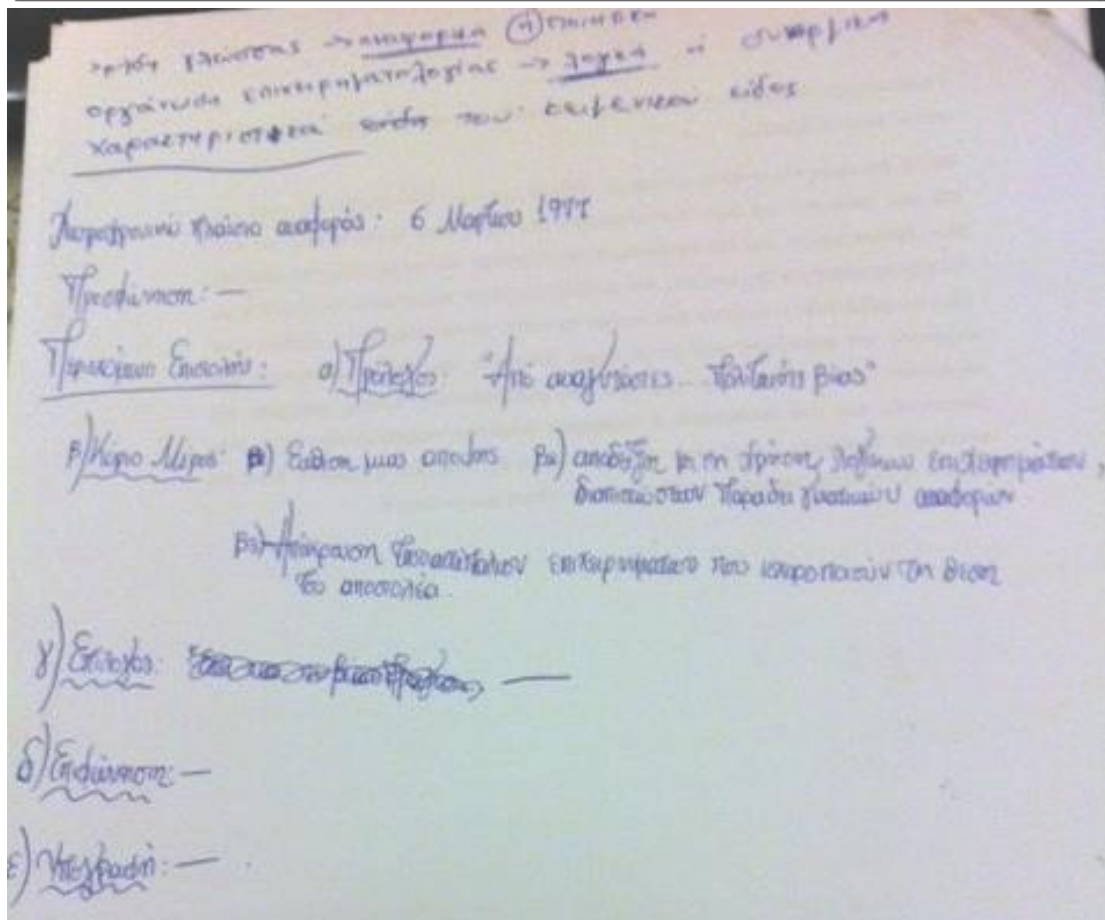 χρήση γλώσσας → αναφορική (ή) ποιητική
οργάνωση επιχειρηματολογίας → λογική ή συνειρμική
χαρακτηριστικά είδη του κειμενικού είδος
Χωροχρονικό πλαίσιο αναφοράς: 6 Μαρτίου 1977
Προσφώνηση: —
Περιεχόμενο Επιστολής: α) Πρόλογος: "Από αναγνώστες... πολιτικής βίας"
β) Κύριο Μέρος: β1) Έκθεση μιας άποψης β2) απόδειξη με τη χρήση λογικών επιχειρημάτων,
διαπιστώσεων παραδειγματικών αναφορών
β3) Αναίρεση επιχειρημάτων που ισχυροποιούν τη θέση
του αποστολέα.
γ) Επίλογος: —
δ) Επιφώνηση: —
ε) Υπογραφή: —